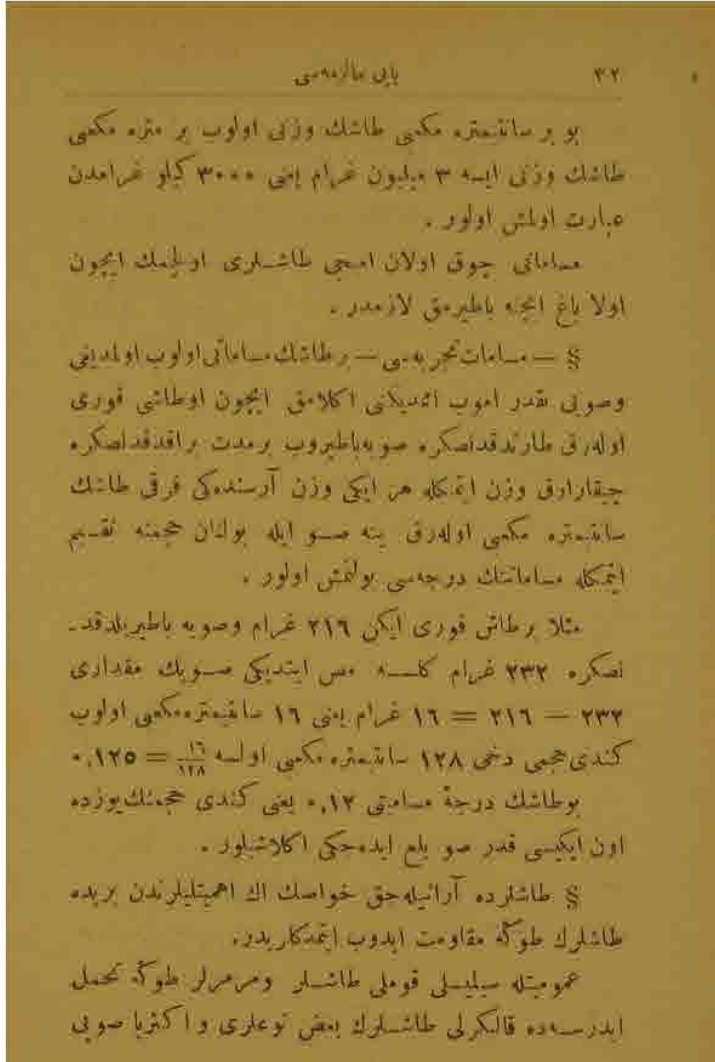 ٣٢ يابى مالزمه‌سى
بو بر سانتيمتره مكعبى طاشك وزنى اولوب بر متره مكعبى
طاشك وزنى ايسه ٣ ميليون غرام يعنى ٣٠٠٠ كيلو غرامدن
عبارت اولمش اولور .
مساماتى چوق اولان امجى طاشلرى اولچمك ايچون
اولا ياغ ايچنه باطيرمق لازمدر .
§ — مسامات تجربه‌سى — بر طاشك مساماتى اولوب اولمديغنى
وصويى نقدر اموب امديكنى اكلامق ايچون او طاشى قورى
اوله‌رق طارتدقدنصكره صويه باطيروب بر مدت براقدقدنصكره
چيقارارق وزن ايتمكله هر ايكى وزن آرسنده‌كى فرقى طاشك
سانتيمتره مكعبى اوله‌رق ينه صو ايله بولنان حجمنه تقسيم
ايتمكله مساماتنك درجه‌سى بولنمش اولور .
مثلا بر طاش قورى ايكن ٢١٦ غرام وصويه باطيريلدقد-
نصكره ٢٣٢ غرام كلسه مص ايتديكى صويك مقدارى
٢٣٢ — ٢١٦ = ١٦ غرام يعنى ١٦ سانتيمتره مكعبى اولوب
كندى حجمى دخى ١٢٨ سانتيمتره مكعبى اولسه ١٦/١٢٨ = ٠,١٢٥
بو طاشك درجۀ مسامتى ٠,١٢ يعنى كندى حجمنك يوزده
اون ايكيسى قدر صو بلع ايده‌جكى اكلاشيلور .
§ طاشلرده آرانيله‌جق خواصك اك اهميتليلرندن بريده
طاشلرك طوكه مقاومت ايدوب ايتمدكلريدر .
عموميتله سيليسلى قوملى طاشلر ومرمرلر طوكه تحمل
ايدرسه‌ده قالكرلى طاشلرك بعض نوعلرى و اكثريا صويى